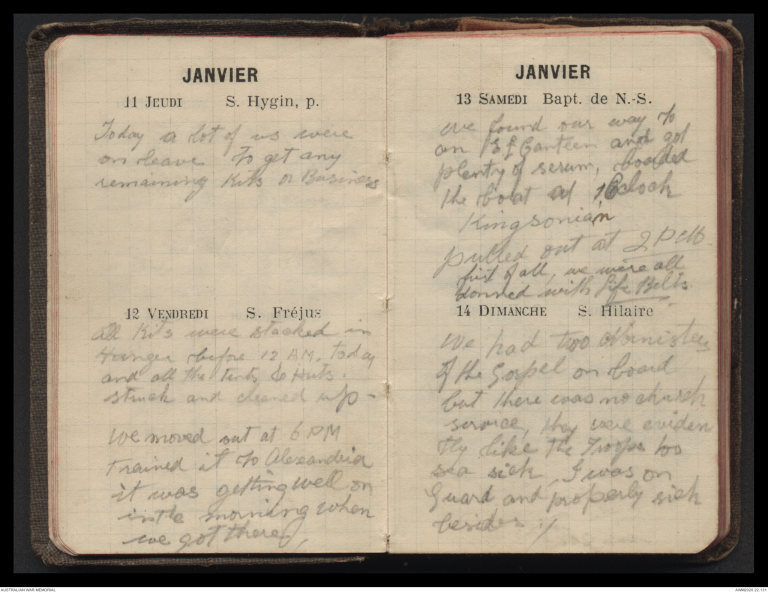 JANVIER
11 JEUDI S. Hygin, p.
Today a lot of us were
on leave to get any
remaining Kits or Business
12 VENDREDI S. Fréjus
all Kits were stacked in
Hunger before 12 AM. today
and all the tents & Huts
struck and cleaned up -
We moved out at 6 PM
trained it to Alexandria
it was getting well on
in the morning when
we got there,
JANVIER
13 SAMEDI Bapt. de N.-S.
we found our way to
an Canteen and got
plenty of serum, boarded
the boat at oclock
Kingsonian
pulled out at 2 PM
first of all, we were all
donned with life Belts
14 DIMANCHE S. Hilaire
We had two Ministers
of the Gospel on board
but there was no church
service, they were eviden
tly like the Troops too
sea sick, I was on
Guard and properly sick
besides
AUSTRALIAN WAR MEMORIAL